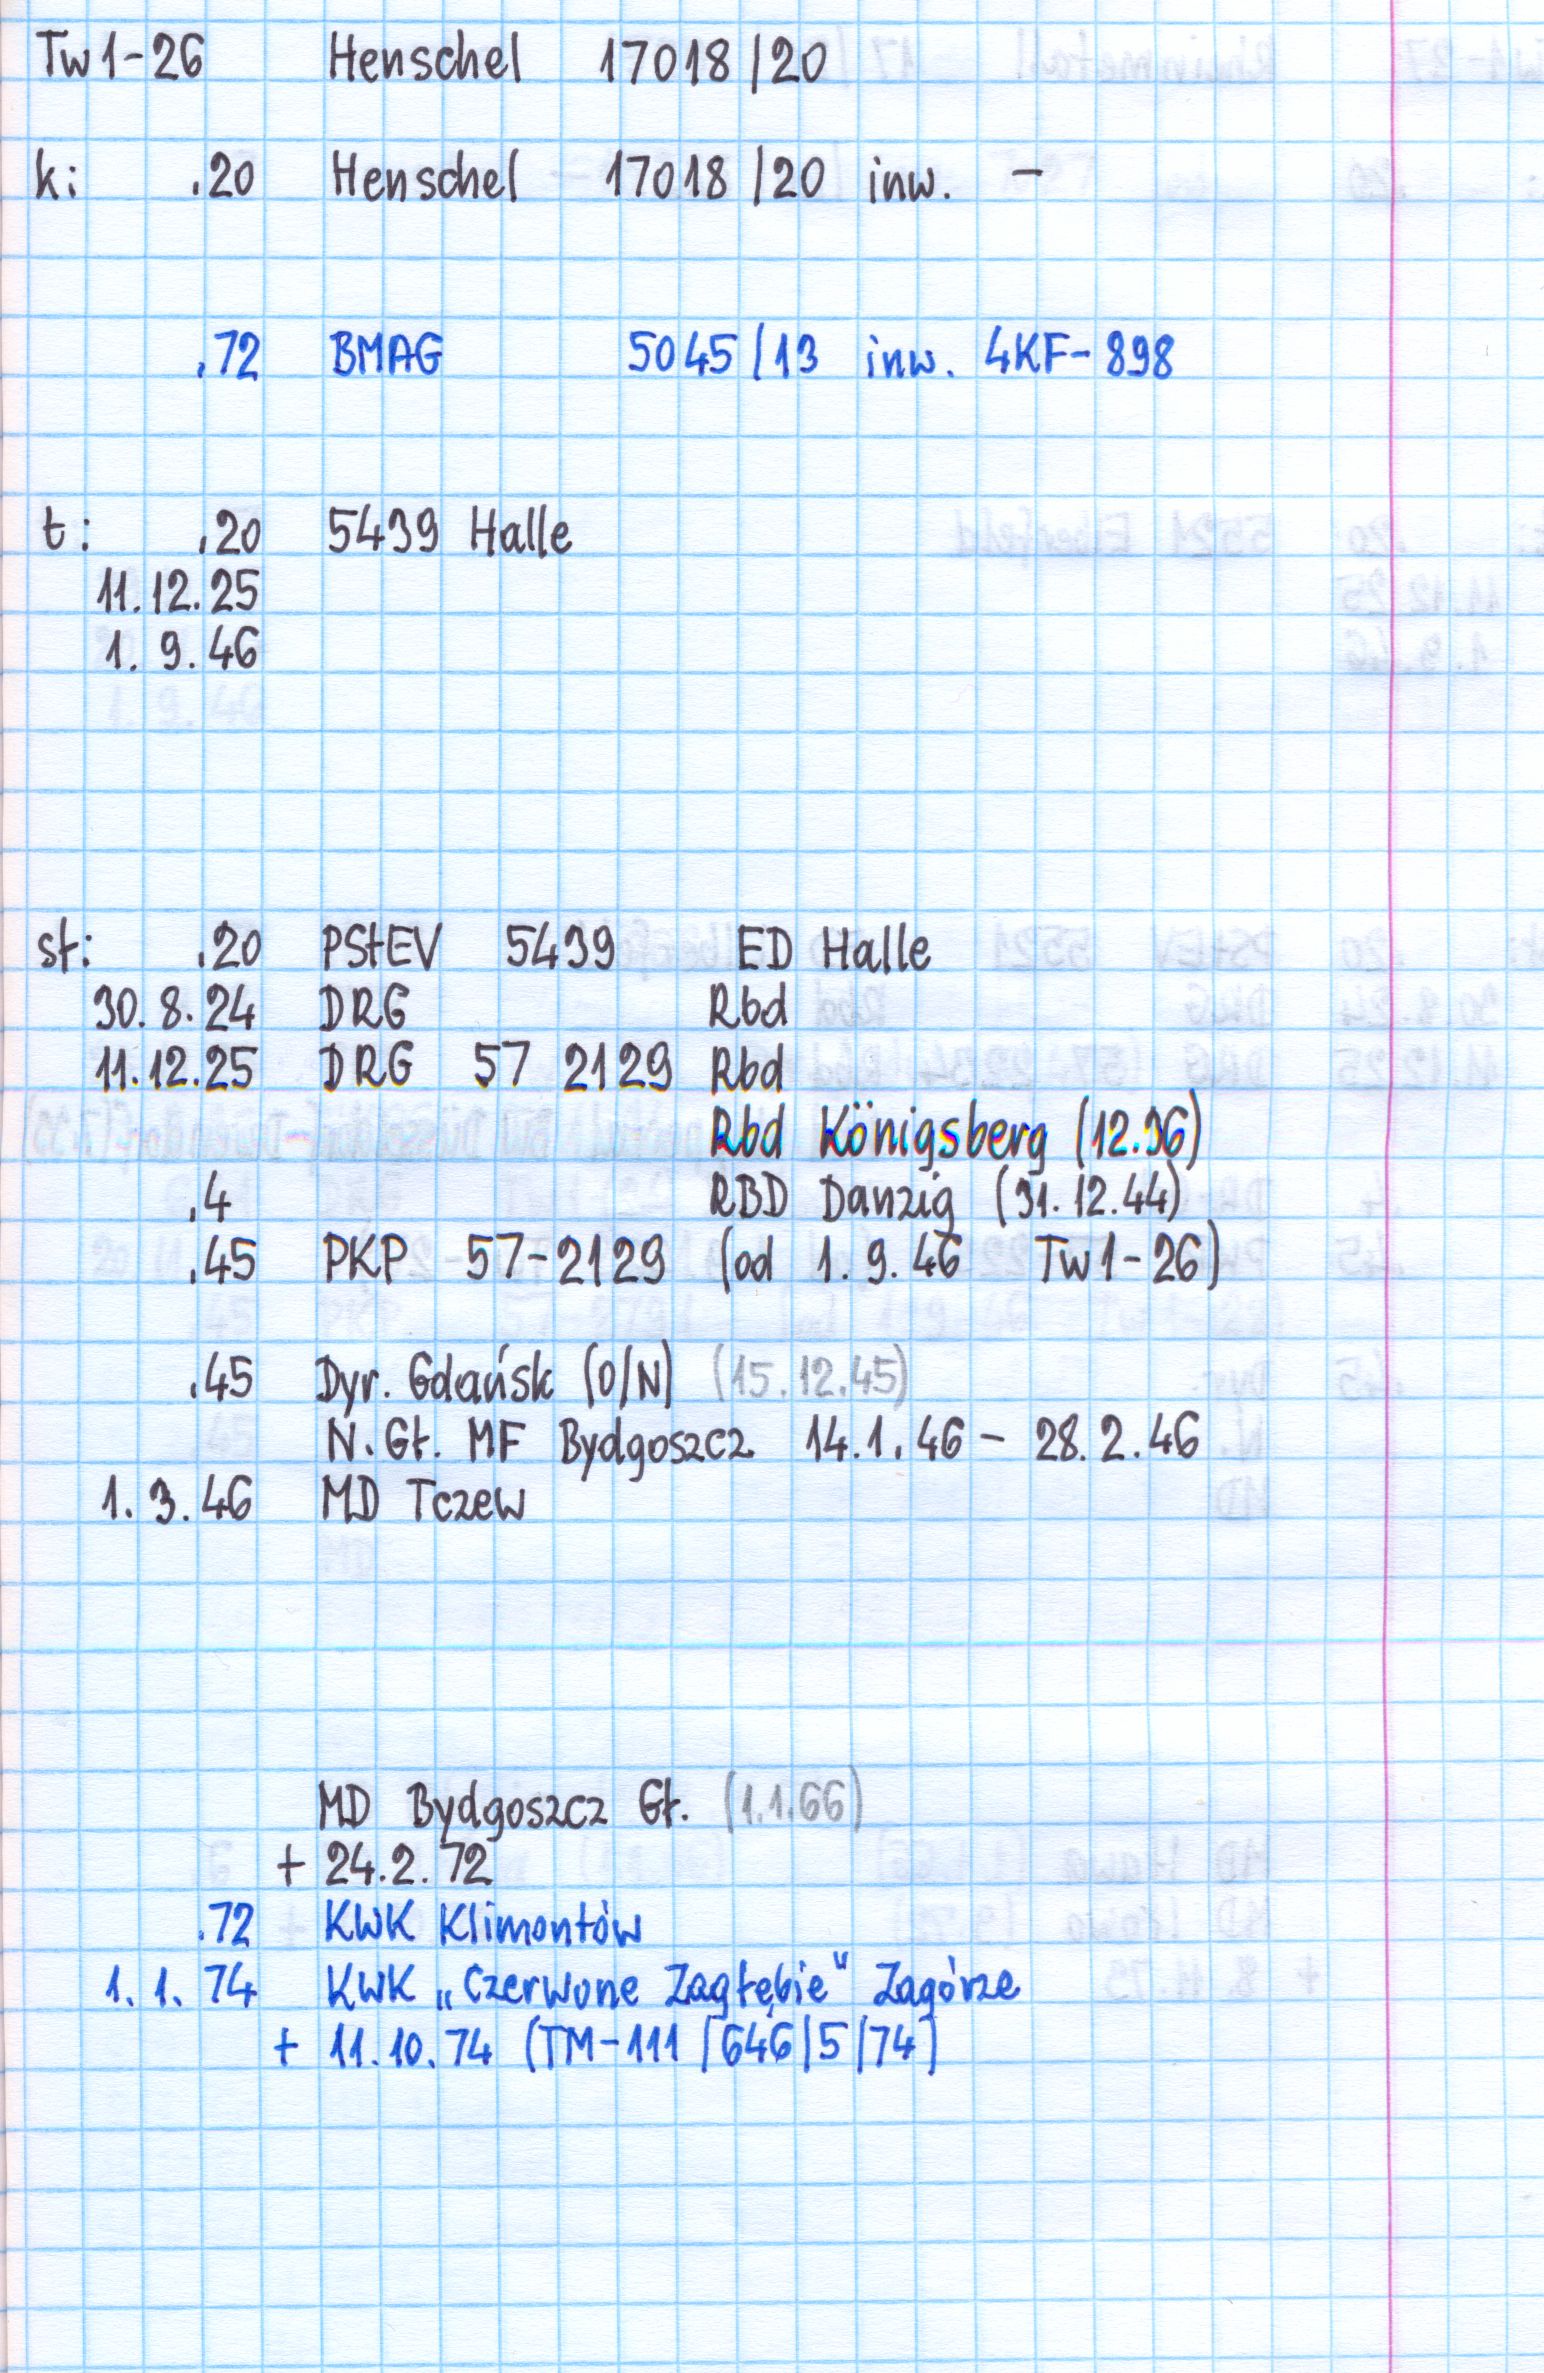 Tw1-26 Henschel 17018/20
k: .20 Henschel 17018/20 inw. -
.72 BMAG 5045/13 inw. 4KF-898
t: .20 5439 Halle
11.12.25
1. 9. 46
st: .20 PStEV 5439 ED Halle
30. 8. 24 DRG Rbd
11.12.25 DRG 57 2129 Rbd
Rbd Königsberg (12.36)
.4 RBD Danzig (31.12.44)
.45 PKP 57-2129 (od 1. 9. 46 Tw1-26)
.45 Dyr. Gdańsk (O/N) (15.12.45)
N. Gł. MF Bydgoszcz 14.1.46 - 28.2.46
1. 3. 46 MD Tczew
MD Bydgoszcz Gł. (1.1.66)
+ 24.2.72
.72 KWK Klimontów
1. 1. 74 KWK „Czerwone Zagłębie" Zagórze
+ 11.10.74 (TM-111/646/5/74)